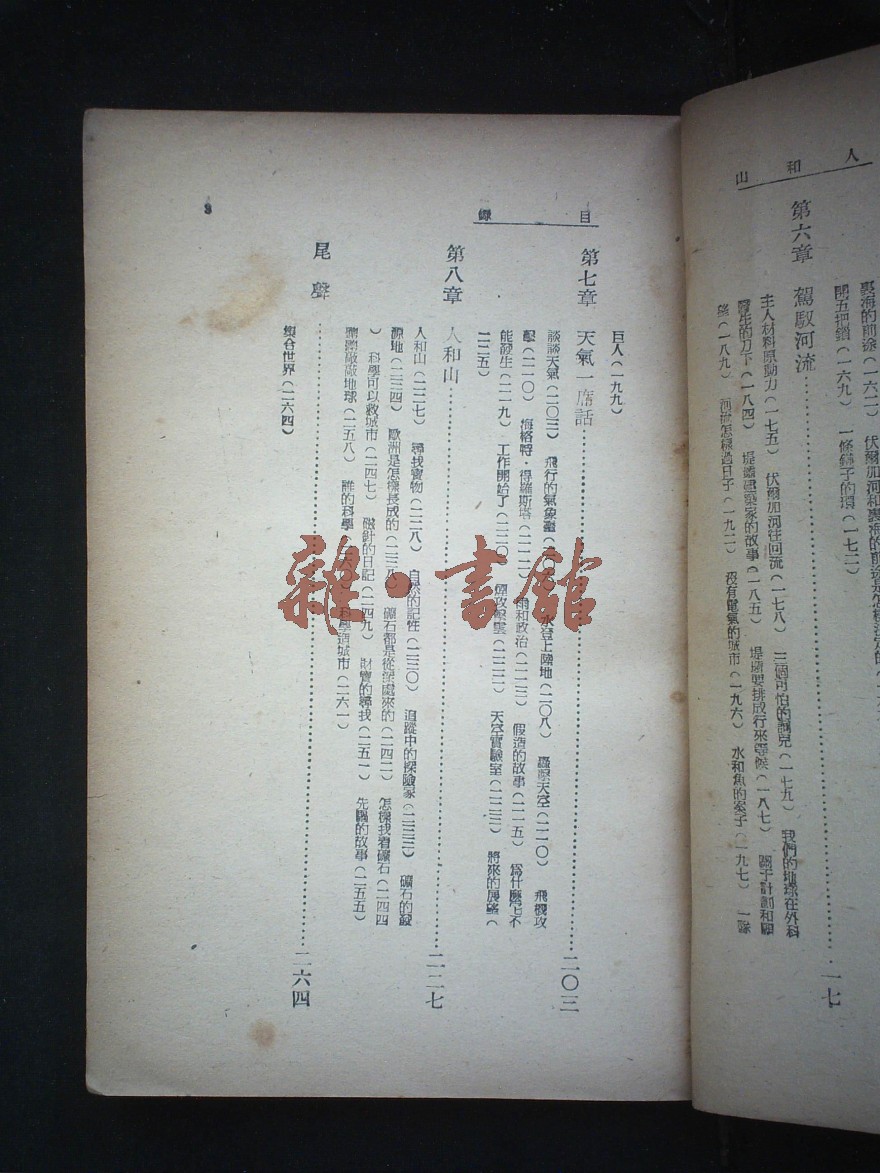 人和山
第六章 駕馭河流……一七
主人材料原動力(一七五) 伏爾加河往回流(一七八) 三個可怕的調兒(一七九) 我們的地球在外科
醫生的刀下(一八四) 堤壩建築家的故事(一八五) 堤壩要排成行來等候(一八七) 關于計劃和
(一八九) 河流怎樣過日子(一九二) 沒有電氣的城市(一九六) 水和魚的案子(一九七) 一條
裏海的前途(一六二) 伏爾加河和裏海的前途是怎樣決定的
開五把鎖(一六九) 一條鏈子的環(一七二)
目錄
巨人(一九九)
第七章 天氣一席話……二〇三
談談天氣(二〇三) 飛行的氣象 水登上陸地(二〇八) 轟擊天空(二一〇) 飛機攻
擊(二一〇) 梅格特·得羅斯塔(二一二) 雨和政治(二一三) 假造的故事(二一五) 爲什麼它不
能發生(二一九) 工作開始了(二二〇) 攻擊雲(二二二) 天空實驗室(二二三) 將來的展望(
二二五)
第八章 人和山……二二七
人和山(二二七) 尋找寶物(二二八) 自然的記性(二三〇) 追蹤中的探險家(二三三) 礦石的發
源地(二三四) 歐洲是怎樣長成的(二三八) 礦石都是從深處來的(二四二) 怎樣找着礦石(二四四
) 科學可以救城市(二四七) 磁針的日記(二四九) 財寶的尋找(二五一) 先驅的故事(二五五)
敲敲地球(二五八) 誰的科學(二六〇) 科學造城市(二六一)
尾聲……二六四
集合世界(二六四)
3
雜·書館